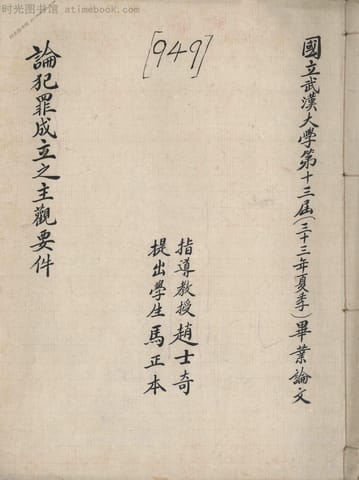 时光图书馆 - atimebook.com
[949]
國立武漢大學第十三屆(三十三年夏季)畢業論文
指導教授趙士奇
提出學生馬正本
論犯罪成立之主觀要件